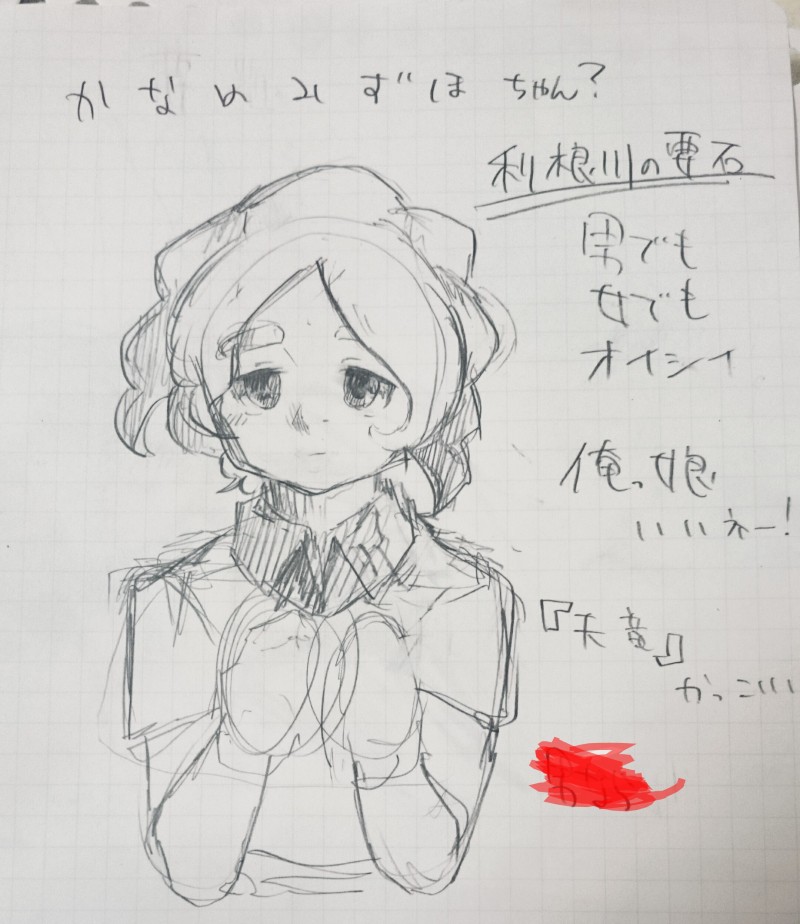 かなめみずほちゃん?
利根川の要石
男でも
女でも
オイシイ
俺っ娘
いいネー!
『天竜』
かっこいい